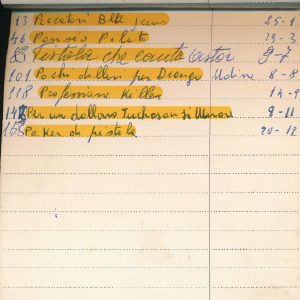 13 Peccatori Blk jeans 25-1
46 Ponseo Pilato 29-3
83 Pistola che canta astor 9-7
101 Pochi dollari per Django Udine 8-8
118 Professione Killer 14-9
142 Per un dollaro Tucson si muore 9-11
158 Poker di pistole 20-12